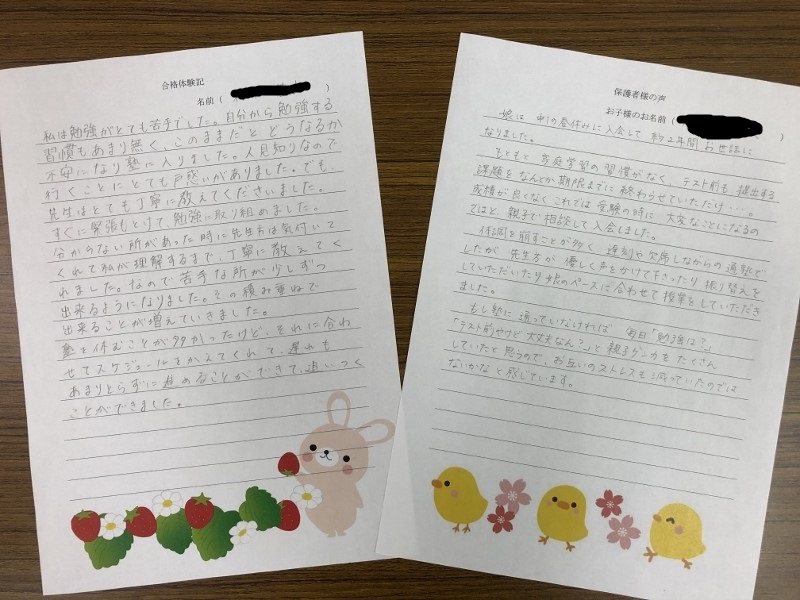 合格体験記
名前（　　　）
私は勉強がとても苦手でした。自分から勉強する
習慣もあまり無く、このままだとどうなるか
不安になり塾に入りました。人見知りなので
行くことにとても戸惑いがありました。でも、
先生はとても丁寧に教えてくださいました。
すぐに緊張もとけて、勉強に取り組めました。
分からない所があった時に先生方は気付いて
くれて私が理解するまで、丁寧に教えてく
れました。なので苦手な所が少しずつ
出来るようになりました。その積み重ねで
出来ることが増えていきました。
塾を休むことが多かったけど、それに合わ
せてスケジュールをかえてくれて、遅れも
あまりとらずに進めることができて、追いつく
ことができました。
保護者様の声
お子様のお名前（　　　）
娘は 中1の春休みに入会して 約2年間 お世話に
なりました。
もともと 家庭学習の習慣がなく、テスト前も 提出する
課題を なんとか期限までに 終わらせていただけ・・・。
成績が良くなくこれでは受験の時に 大変なことになるの
ではと、親子で相談して入会しました。
体調を崩すことが多く、遅刻や欠席しながらの通塾で
したが 先生方が 優しく声をかけて下さったり 振り替えを
していただいたり 娘のペースに合わせて 授業をしていただき
ました。
もし塾に 通っていなければ 毎日「勉強は？」
「テスト前やけど 大丈夫なん？」と 親子ゲンカを たくさん
していたと 思うので、お互いのストレスも 減っていたのでは
ないかなと 感じています。